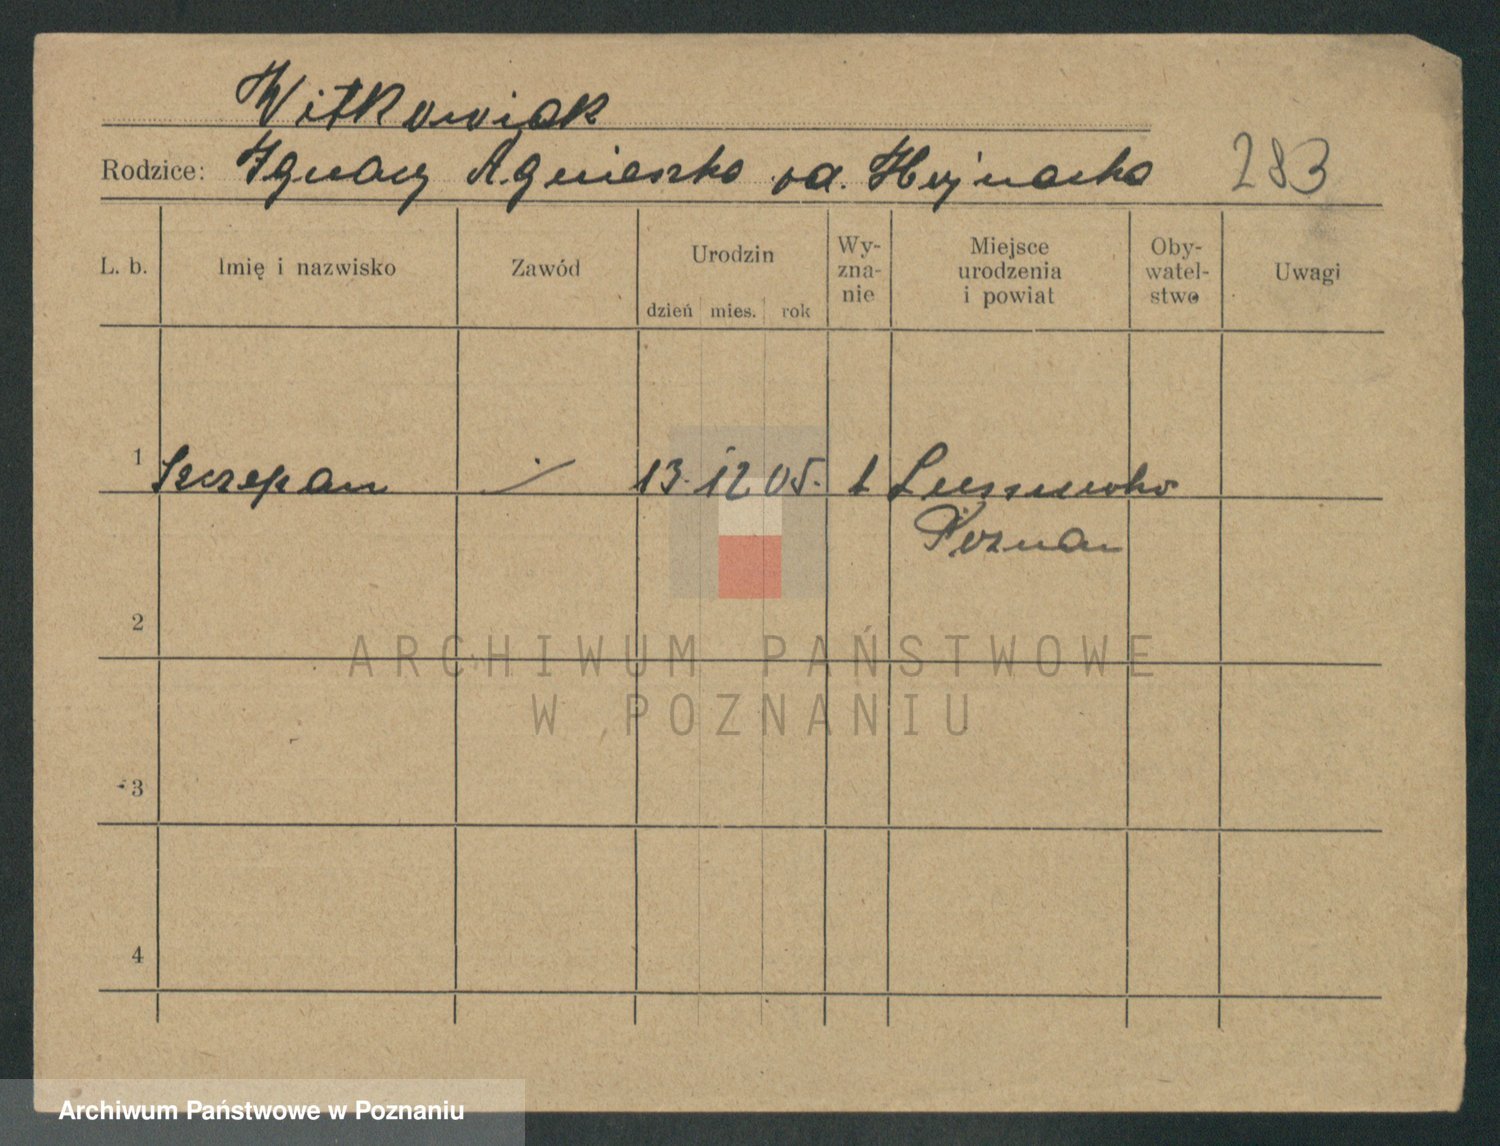 Witkowiak
Rodzice: Ignacy Agnieszka zd. Hejnacka 283
L. b. Imię i nazwisko Zawód Urodzin dzień mies. rok Wy-zna-nie Miejsce urodzenia i powiat Oby-watel-stwo Uwagi
1 Szczepan 13. 12 05.
Poznań
2
ARCHIWUM PAŃSTWOWE
W POZNANIU
3
4
Archiwum Państwowe w Poznaniu